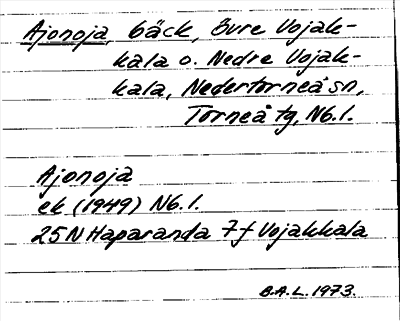 Ajonoja, bäck, Övre Vojak-
kala o. Nedre Vojak-
kala, Nedertorneå sn,
Torneå tg, Nb.l.
Ajonoja
ek (1949) Nb.l.
25N Haparanda 7f Vojakkala
B.A.L. 1973.